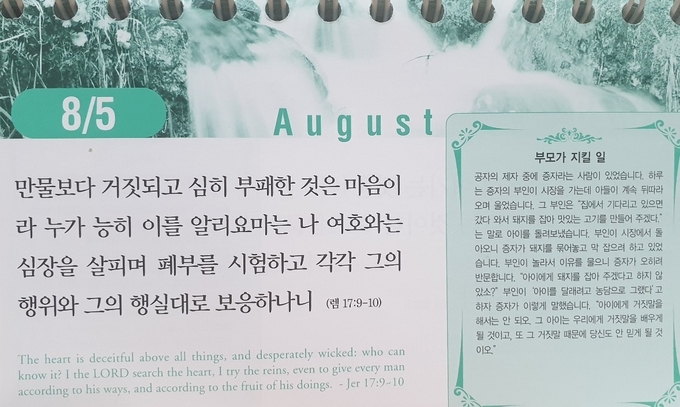 8/5
August
만물보다 거짓되고 심히 부패한 것은 마음이
라 누가 능히 이를 알리요마는 나 여호와는
심장을 살피며 폐부를 시험하고 각각 그의
행위와 그의 행실대로 보응하나니 (렘 17:9-10)
The heart is deceitful above all things, and desperately wicked: who can
know it? I the LORD search the heart, I try the reins, even to give every man
according to his ways, and according to the fruit of his doings. - Jer 17:9-10
부모가 지킬 일
공자의 제자 중에 증자라는 사람이 있었습니다. 하루
는 증자의 부인이 시장을 가는데 아들이 계속 뒤따라
오며 울었습니다. 그 부인은 "집에서 기다리고 있으면
갔다 와서 돼지를 잡아 맛있는 고기를 만들어 주겠다."
는 말로 아이를 돌려보냈습니다. 부인이 시장에서 돌
아오니 증자가 돼지를 묶어놓고 막 잡으려 하고 있었
습니다. 부인이 놀라서 이유를 물으니 증자가 오히려
반문합니다. "아이에게 돼지를 잡아 주겠다고 하지 않
았소?" 부인이 '아이를 달래려고 농담으로 그랬다'고
하자 증자가 이렇게 말했습니다. "아이에게 거짓말을
해서는 안 되오. 그 아이는 우리에게 거짓말을 배우게
될 것이고, 또 그 거짓말 때문에 당신도 안 믿게 될 것
이오."